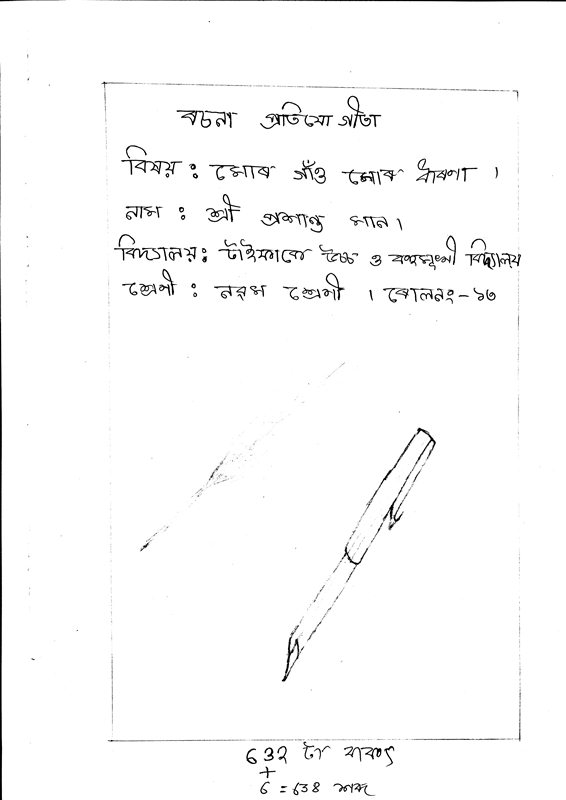 ৰচনা প্ৰতিযোগীতা
বিষয় : মোৰ গাঁও মোৰ ধাৰণা ।
নাম : শ্ৰী প্ৰশান্ত মান ।
বিদ্যালয় : টাইফাকে উচ্চ ও বহুমূখী বিদ্যালয়
শ্ৰেণী : নৱম শ্ৰেণী । ৰোলনং - ১৩
টা
+
৬ = ৬৩৪ শব্দ